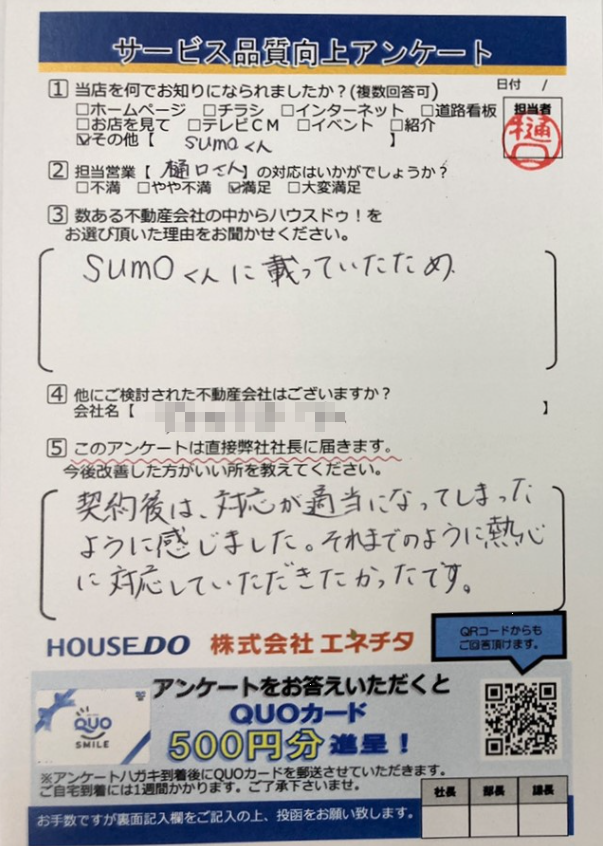 サービス品質向上アンケート
日付 /
1 当店を何でお知りになられましたか？(複数回答可)
□ホームページ □チラシ □インターネット □道路看板
□お店を見て □テレビCM □イベント □紹介
☑その他【 SUMOくん 】
担当者
樋口
2 担当営業【 樋口さん 】の対応はいかがでしょうか？
□不満 □やや不満 ☑満足 □大変満足
3 数ある不動産会社の中からハウスドゥ！を
お選び頂いた理由をお聞かせください。
SUMOくんに載っていたため
4 他にご検討された不動産会社はございますか？
会社名【 】
5 このアンケートは直接弊社社長に届きます。
今後改善した方がいい所を教えてください。
契約後は、対応が適当になってしまった
ように感じました。それまでのように熱心
に対応していただきたかったです。
HOUSEDO 株式会社 エネチタ
QRコードからも
ご回答頂けます。
アンケートをお答えいただくと
QUOカード
500円分 進呈！
QUO
SMILE
※アンケートハガキ到着後にQUOカードを郵送させていただきます。
ご自宅到着には1週間かかります。ご了承下さいませ。
社長 部長 課長
お手数ですが裏面記入欄をご記入の上、投函をお願い致します。